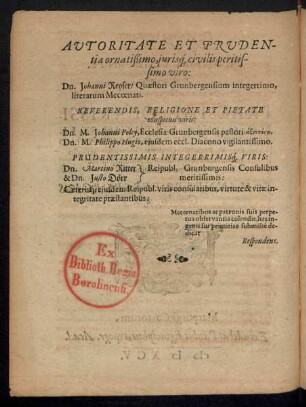 AVTORITATE ET PRVDEN-
tia ornatißimo, jurisq́; civilis peritis-
simo viro:
Dn. Johanni Keyser/ Quæstori Grunbergensium integerrimo,
literarum Mecœnati.
REVERENDIS, RELIGIONE ET PIETATE
conspicuis viris:
Dn. M. Johanni Ecclesiæ Grunbergensis pastori
Dn. M. Philippo ejusdem eccl. Diacono vigilantissimo.
PRUDENTISSIMIS INTEGERRIMISq́; VIRIS:
Dn. Martino Ritter } Reipubl. Grunbergensis Consulibus
& Dn. Justo Dörr } meritissimis:
Cæterisq́; ejusdem Reipubl. viris consularibus, virtute & vitæ in-
tegritate præstantibus:
Mœcenatibus ac patronis suis perpe-
tua observantia colendis, hæc in-
genii sui primitias submisse de-
dicat
Respondens.
Ex
Biblioth. Regia
Berolinensi.